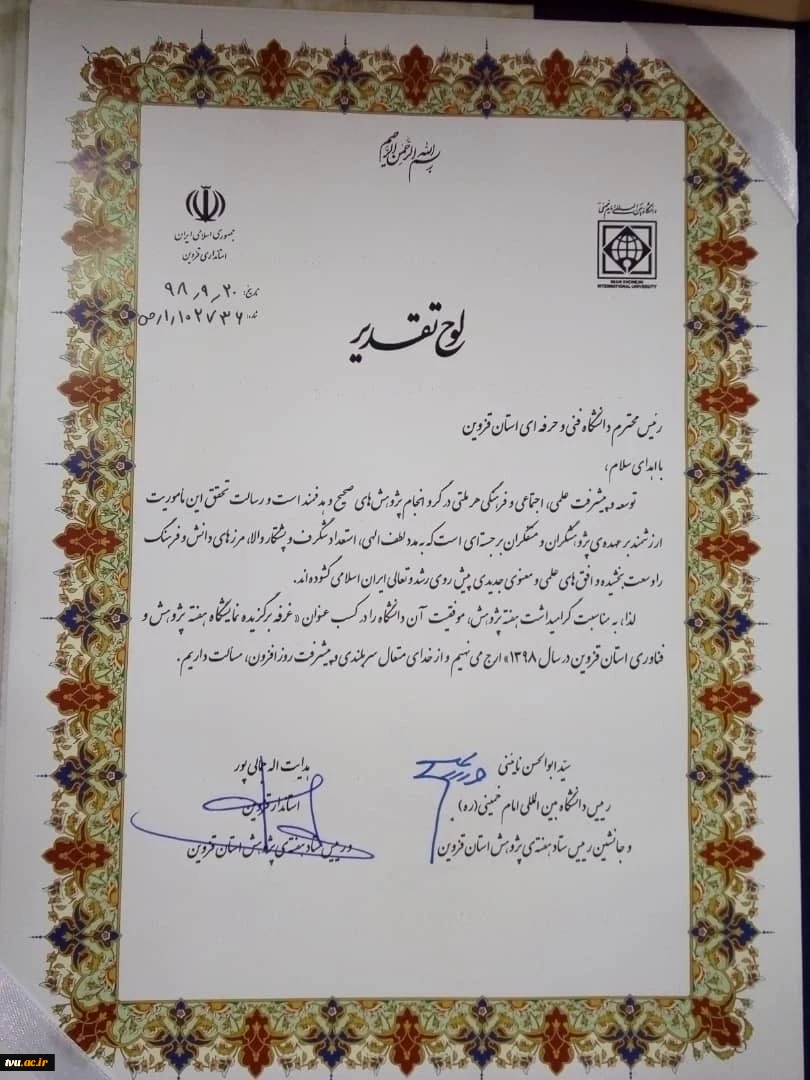 بسم الله الرحمن الرحیم
دانشگاه بین المللی امام خمینی
IMAM KHOMEINI
INTERNATIONAL UNIVERSITY
جمهوری اسلامی ایران
استانداری قزوین
تاریخ: ۹۸٫۹٫۲۰
۱۰۲۷۳۶
لوح تقدیر
رئیس محترم دانشگاه فنی و حرفه ای استان قزوین
با اهدای سلام،
توسعه و پیشرفت علمی، اجتماعی و فرهنگی هر ملتی در گرو انجام پژوهش های صحیح و هدفمند است و رسالت تحقق این مأموریت
ارزشمند بر عهده ی پژوهشگران و متفکران برجسته ای است که به مدد لطف الهی، استعداد شگرف و پشتکار والا، مرزهای دانش و فرهنگ
را وسعت بخشیده و افق های علمی و معنوی جدیدی پیش روی رشد و تعالی ایران اسلامی گشوده اند.
لذا، به مناسبت گرامیداشت هفته پژوهش، موفقیت آن دانشگاه را در کسب عنوان «غرفه برگزیده نمایشگاه هفته پژوهش و
فناوری استان قزوین در سال ۱۳۹۸» ارج می نهیم و از خدای متعال سربلندی و پیشرفت روزافزون، مسألت داریم.
سیّد ابوالحسن نائینی
رییس دانشگاه بین المللی امام خمینی (ره)
و جانشین رییس ستاد هفته ی پژوهش استان قزوین
هدایت اله جمالی پور
استاندار قزوین
و رییس ستاد هفته ی پژوهش استان قزوین
tvu.ac.ir